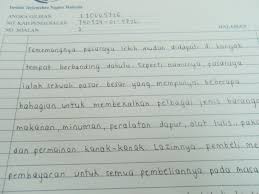 ANGKA GILIRAN :
NO. KAD PENGENALAN :
NO. SOALAN :
HALAMAN
Sememangnya, pasaraya lebih mudah didapati di banyak
tempat berbanding dahulu. Seperti namanya, pasaraya
ialah sebuah pasar besar yang mempunyai beberapa
bahagian untuk membekalkan pelbagai jenis barangan
makanan, minuman, peralatan dapur, alat tulis, pakaian
dan permainan kanak-kanak. Lazimnya, pembeli me
pembayaran untuk semua pembeliannya pada